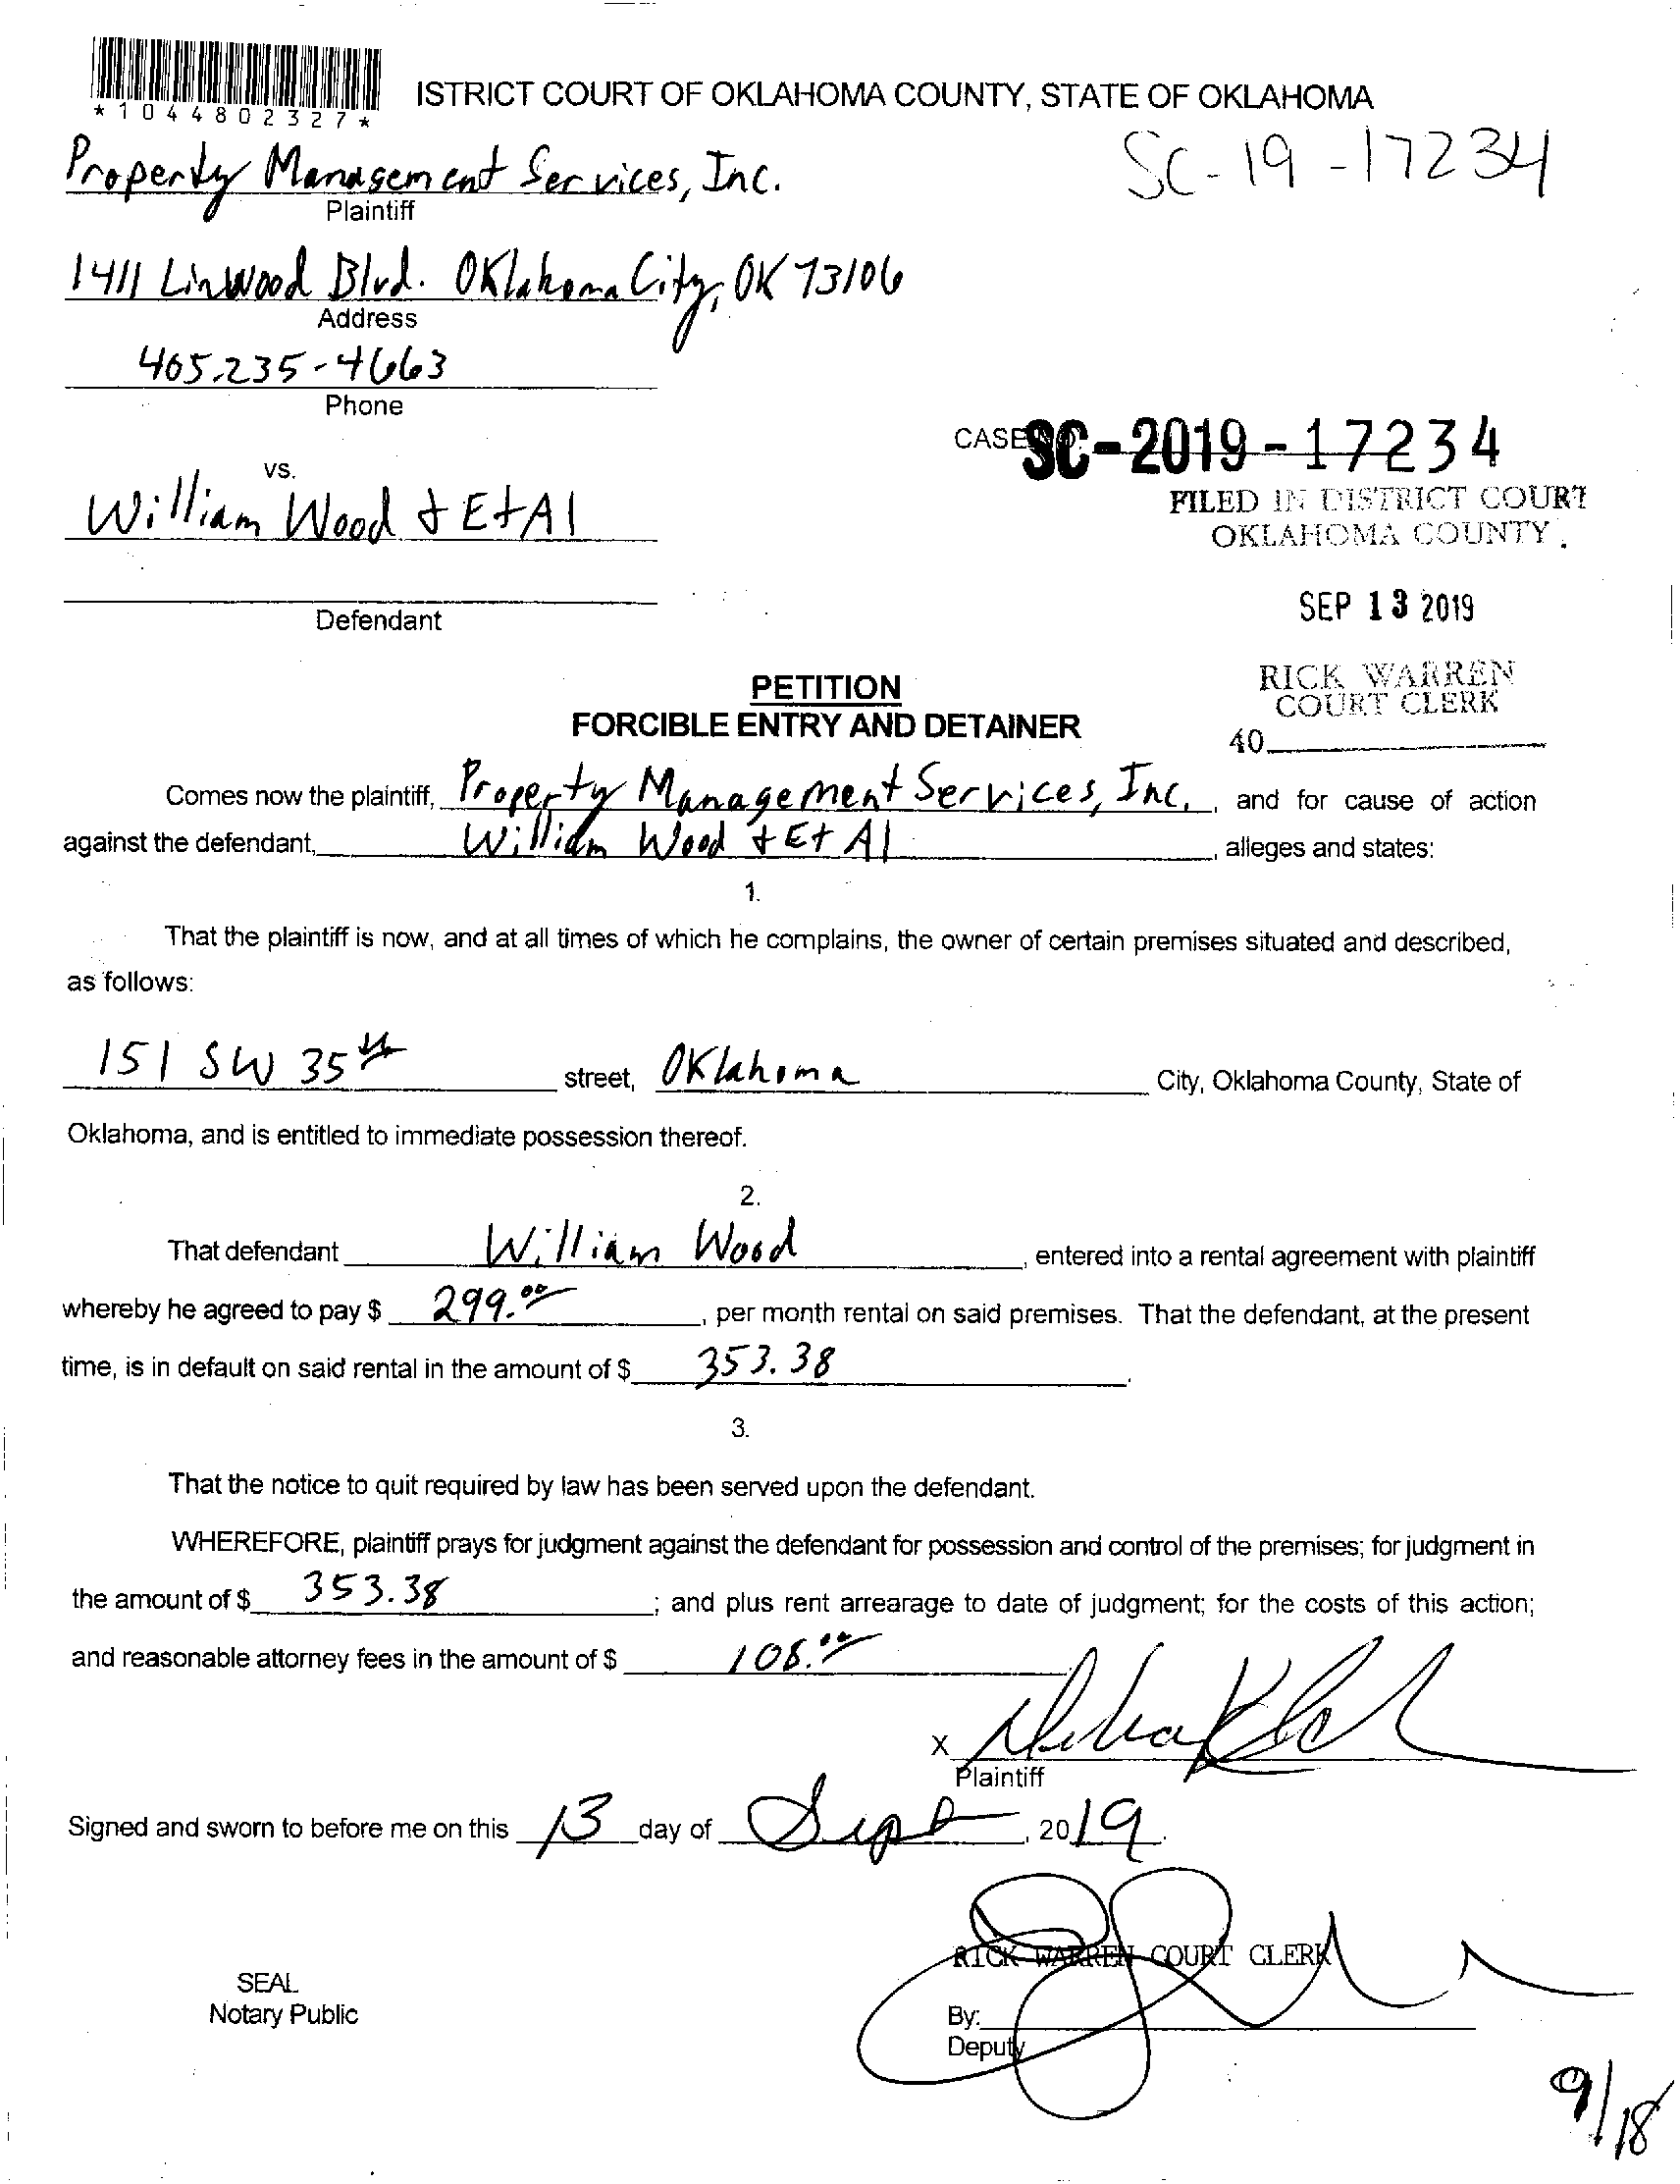 *1044802327*
ISTRICT COURT OF OKLAHOMA COUNTY, STATE OF OKLAHOMA
Property Management Services, Inc.
SC-19-17234
Plaintiff
1411 Linwood Blvd. Oklahoma City, OK 73106
Address
405.235-4663
Phone
CASE SC-2019-17234
vs.
FILED IN DISTRICT COURT
William Wood & Et Al
OKLAHOMA COUNTY.
SEP 13 2019
Defendant
RICK WARREN
COURT CLERK
PETITION
FORCIBLE ENTRY AND DETAINER
40
Comes now the plaintiff, Property Management Services, Inc., and for cause of action
against the defendant, William Wood & Et Al, alleges and states:
1.
That the plaintiff is now, and at all times of which he complains, the owner of certain premises situated and described,
as follows:
151 SW 35th street, Oklahoma City, Oklahoma County, State of
Oklahoma, and is entitled to immediate possession thereof.
2.
That defendant William Wood, entered into a rental agreement with plaintiff
whereby he agreed to pay $ 299.00, per month rental on said premises. That the defendant, at the present
time, is in default on said rental in the amount of $ 353.38.
3.
That the notice to quit required by law has been served upon the defendant.
WHEREFORE, plaintiff prays for judgment against the defendant for possession and control of the premises; for judgment in
the amount of $ 353.38; and plus rent arrearage to date of judgment; for the costs of this action;
and reasonable attorney fees in the amount of $ 108.00
X
Plaintiff
Signed and sworn to before me on this 13 day of Sept, 2019.
RICK WARREN COURT CLERK
SEAL
Notary Public
By:
Deputy
9/18